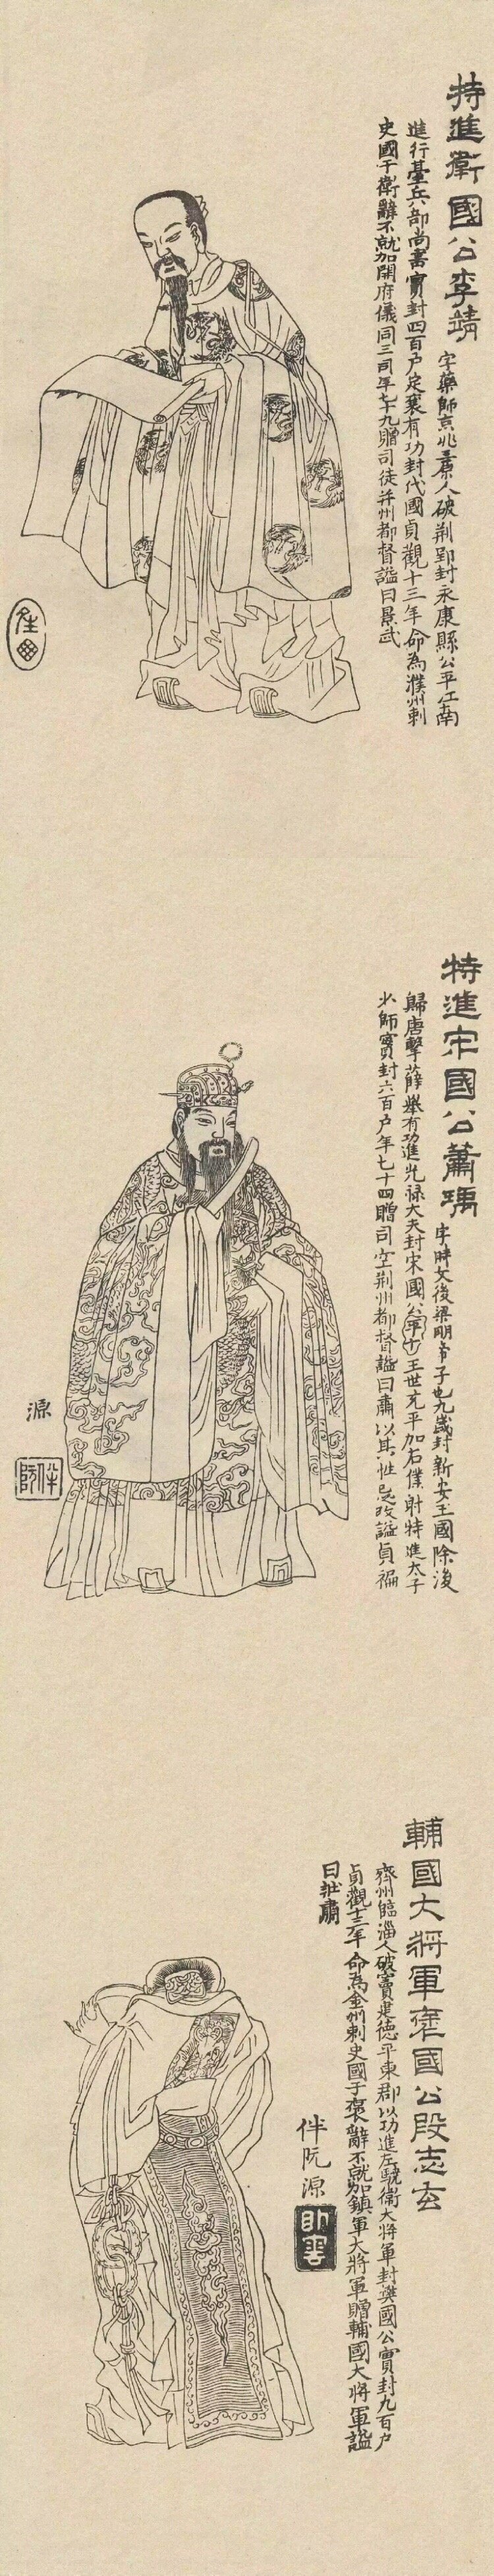 特進衛國公李靖
字藥師京兆三原人破荆郢封永康縣公平江南
進行臺兵部尚書實封四百户定襄有功封代國貞觀十三年命為濮州刺
史國于衛辭不就加開府儀同三司年七十九贈司徒并州都督謚曰景武
特進宋國公蕭瑀
字時文後梁明帝子也九歲封新安王國除後
歸唐擊薛舉有功進光禄大夫封宋國公平王世充平加右僕射特進太子
少師實封六百户年七十四贈司空荆州都督謚曰肅以其性忌改謚貞褊
源
輔國大將軍褒國公段志玄
齊州臨淄人破竇建德平東郡以功進左驍衛大將軍封樊國公實封九百户
貞觀十三年命為金州刺史國于褒辭不就加鎮軍大將軍贈輔國大將軍謚
曰壯肅
伴阮源